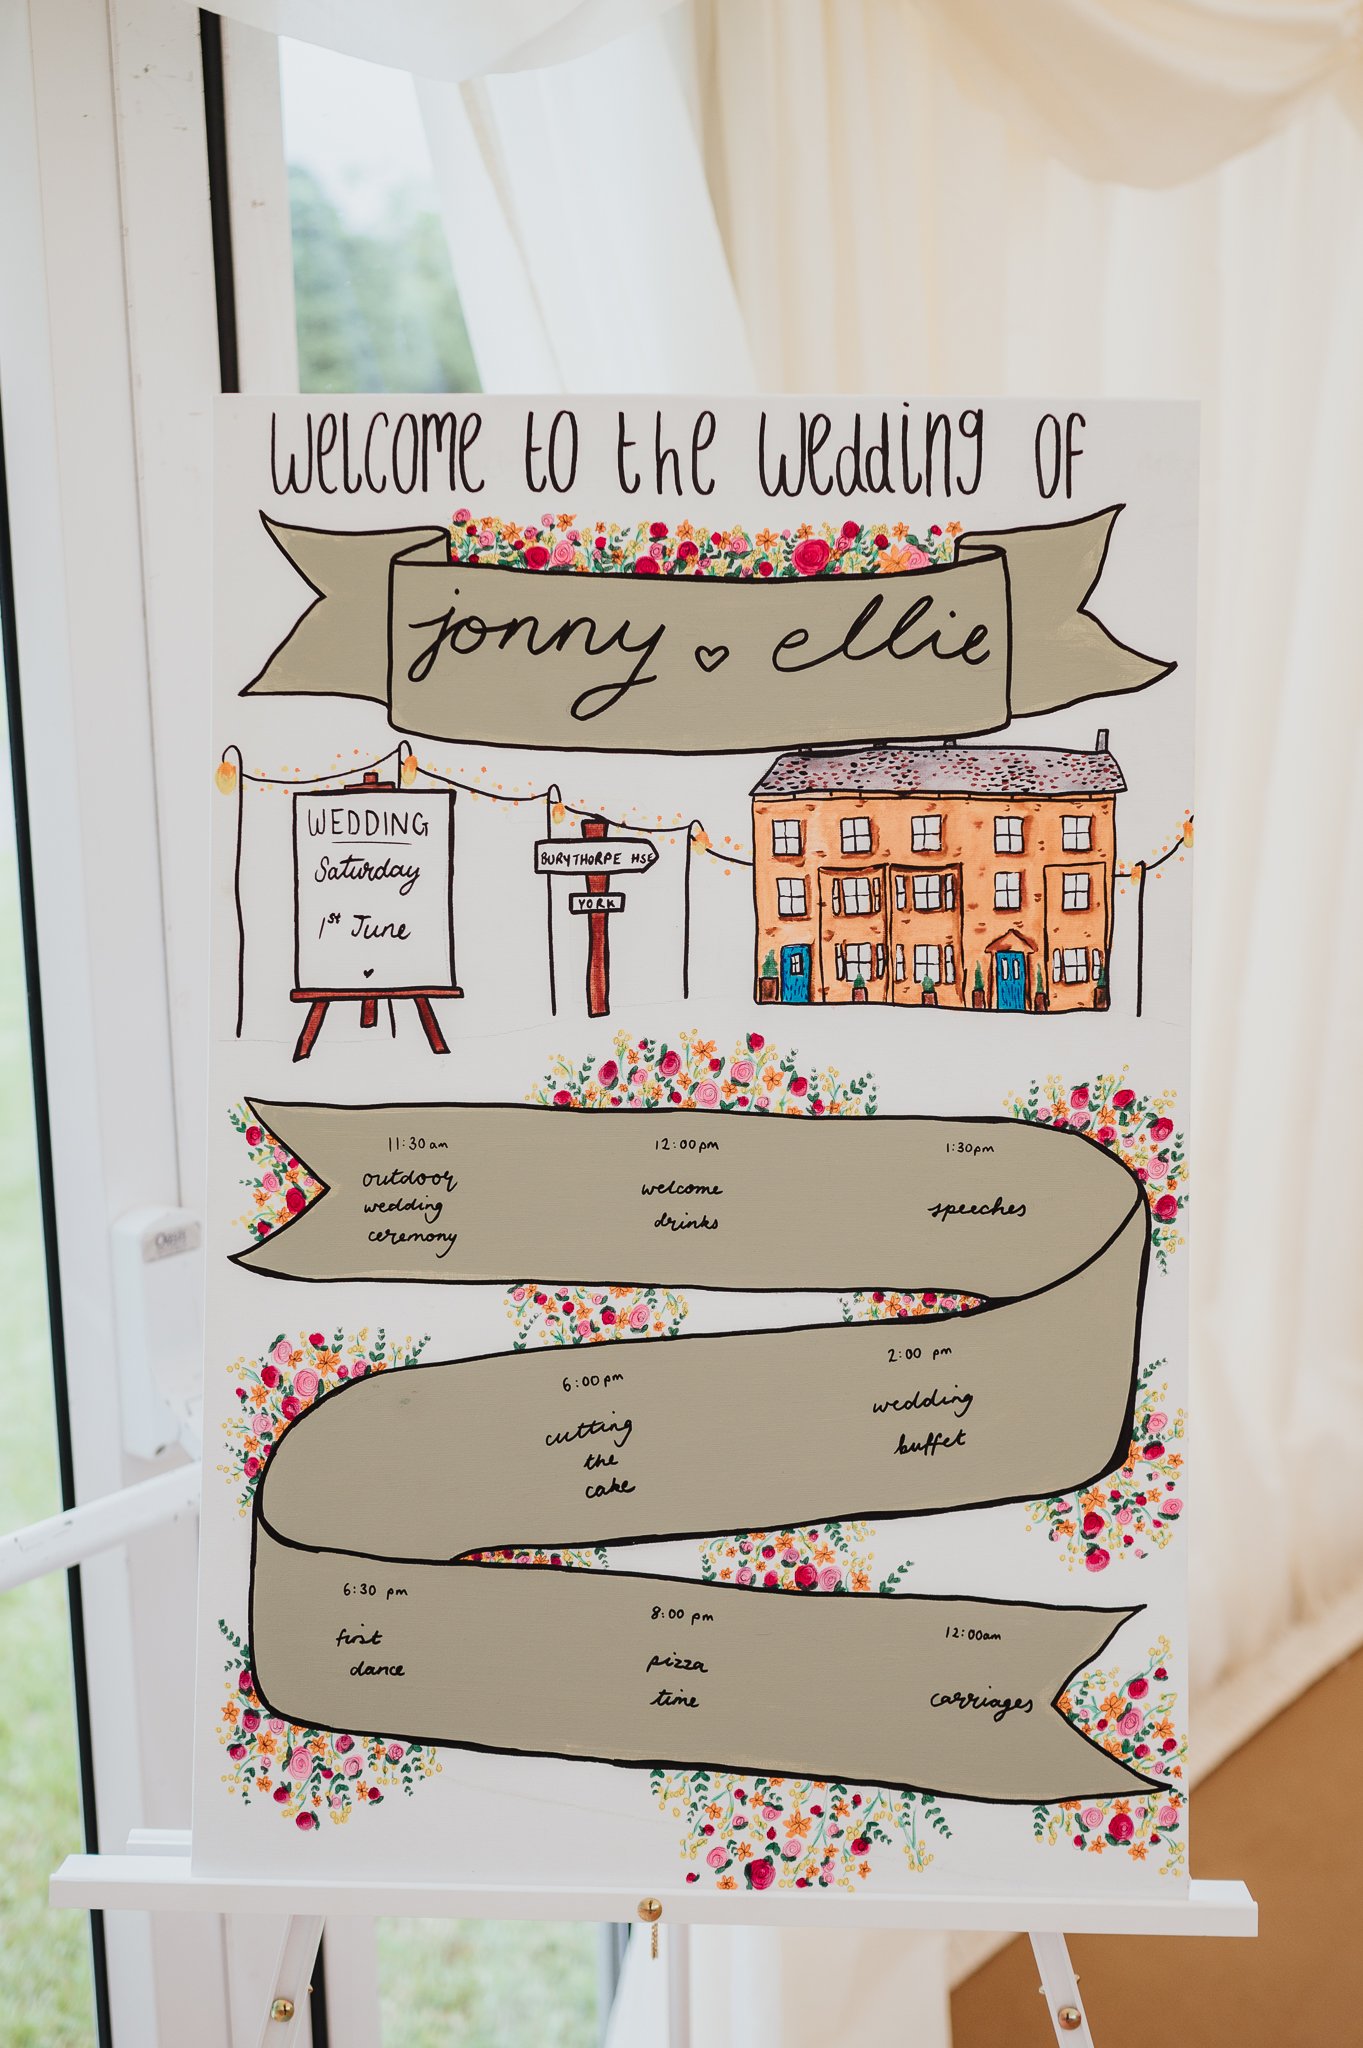 welcome to the wedding of
jonny ♡ ellie
WEDDING
Saturday
1st June
BURYTHORPE HSE
YORK
11:30 am
outdoor
wedding
ceremony
12:00pm
welcome
drinks
1:30pm
speeches
2:00 pm
wedding
buffet
6:00pm
cutting
the
cake
6:30 pm
first
dance
8:00 pm
pizza
time
12:00am
carriages